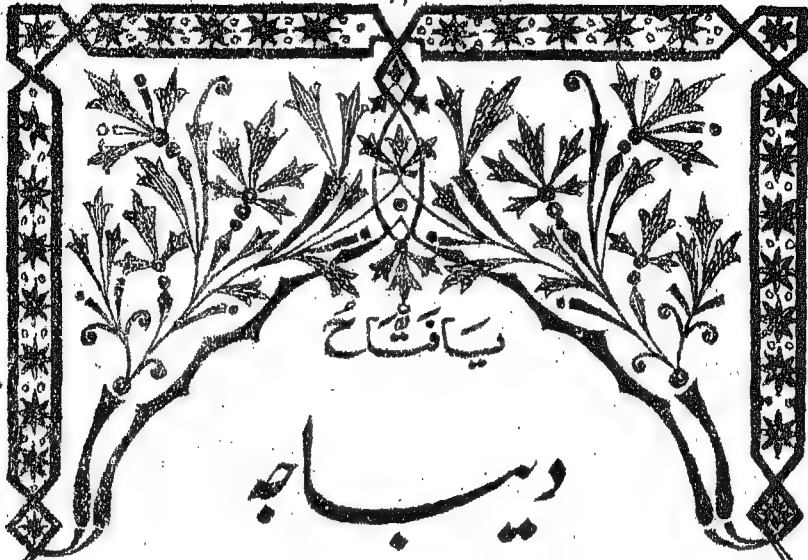 يَا فَتَّاحُ
دیباجہ